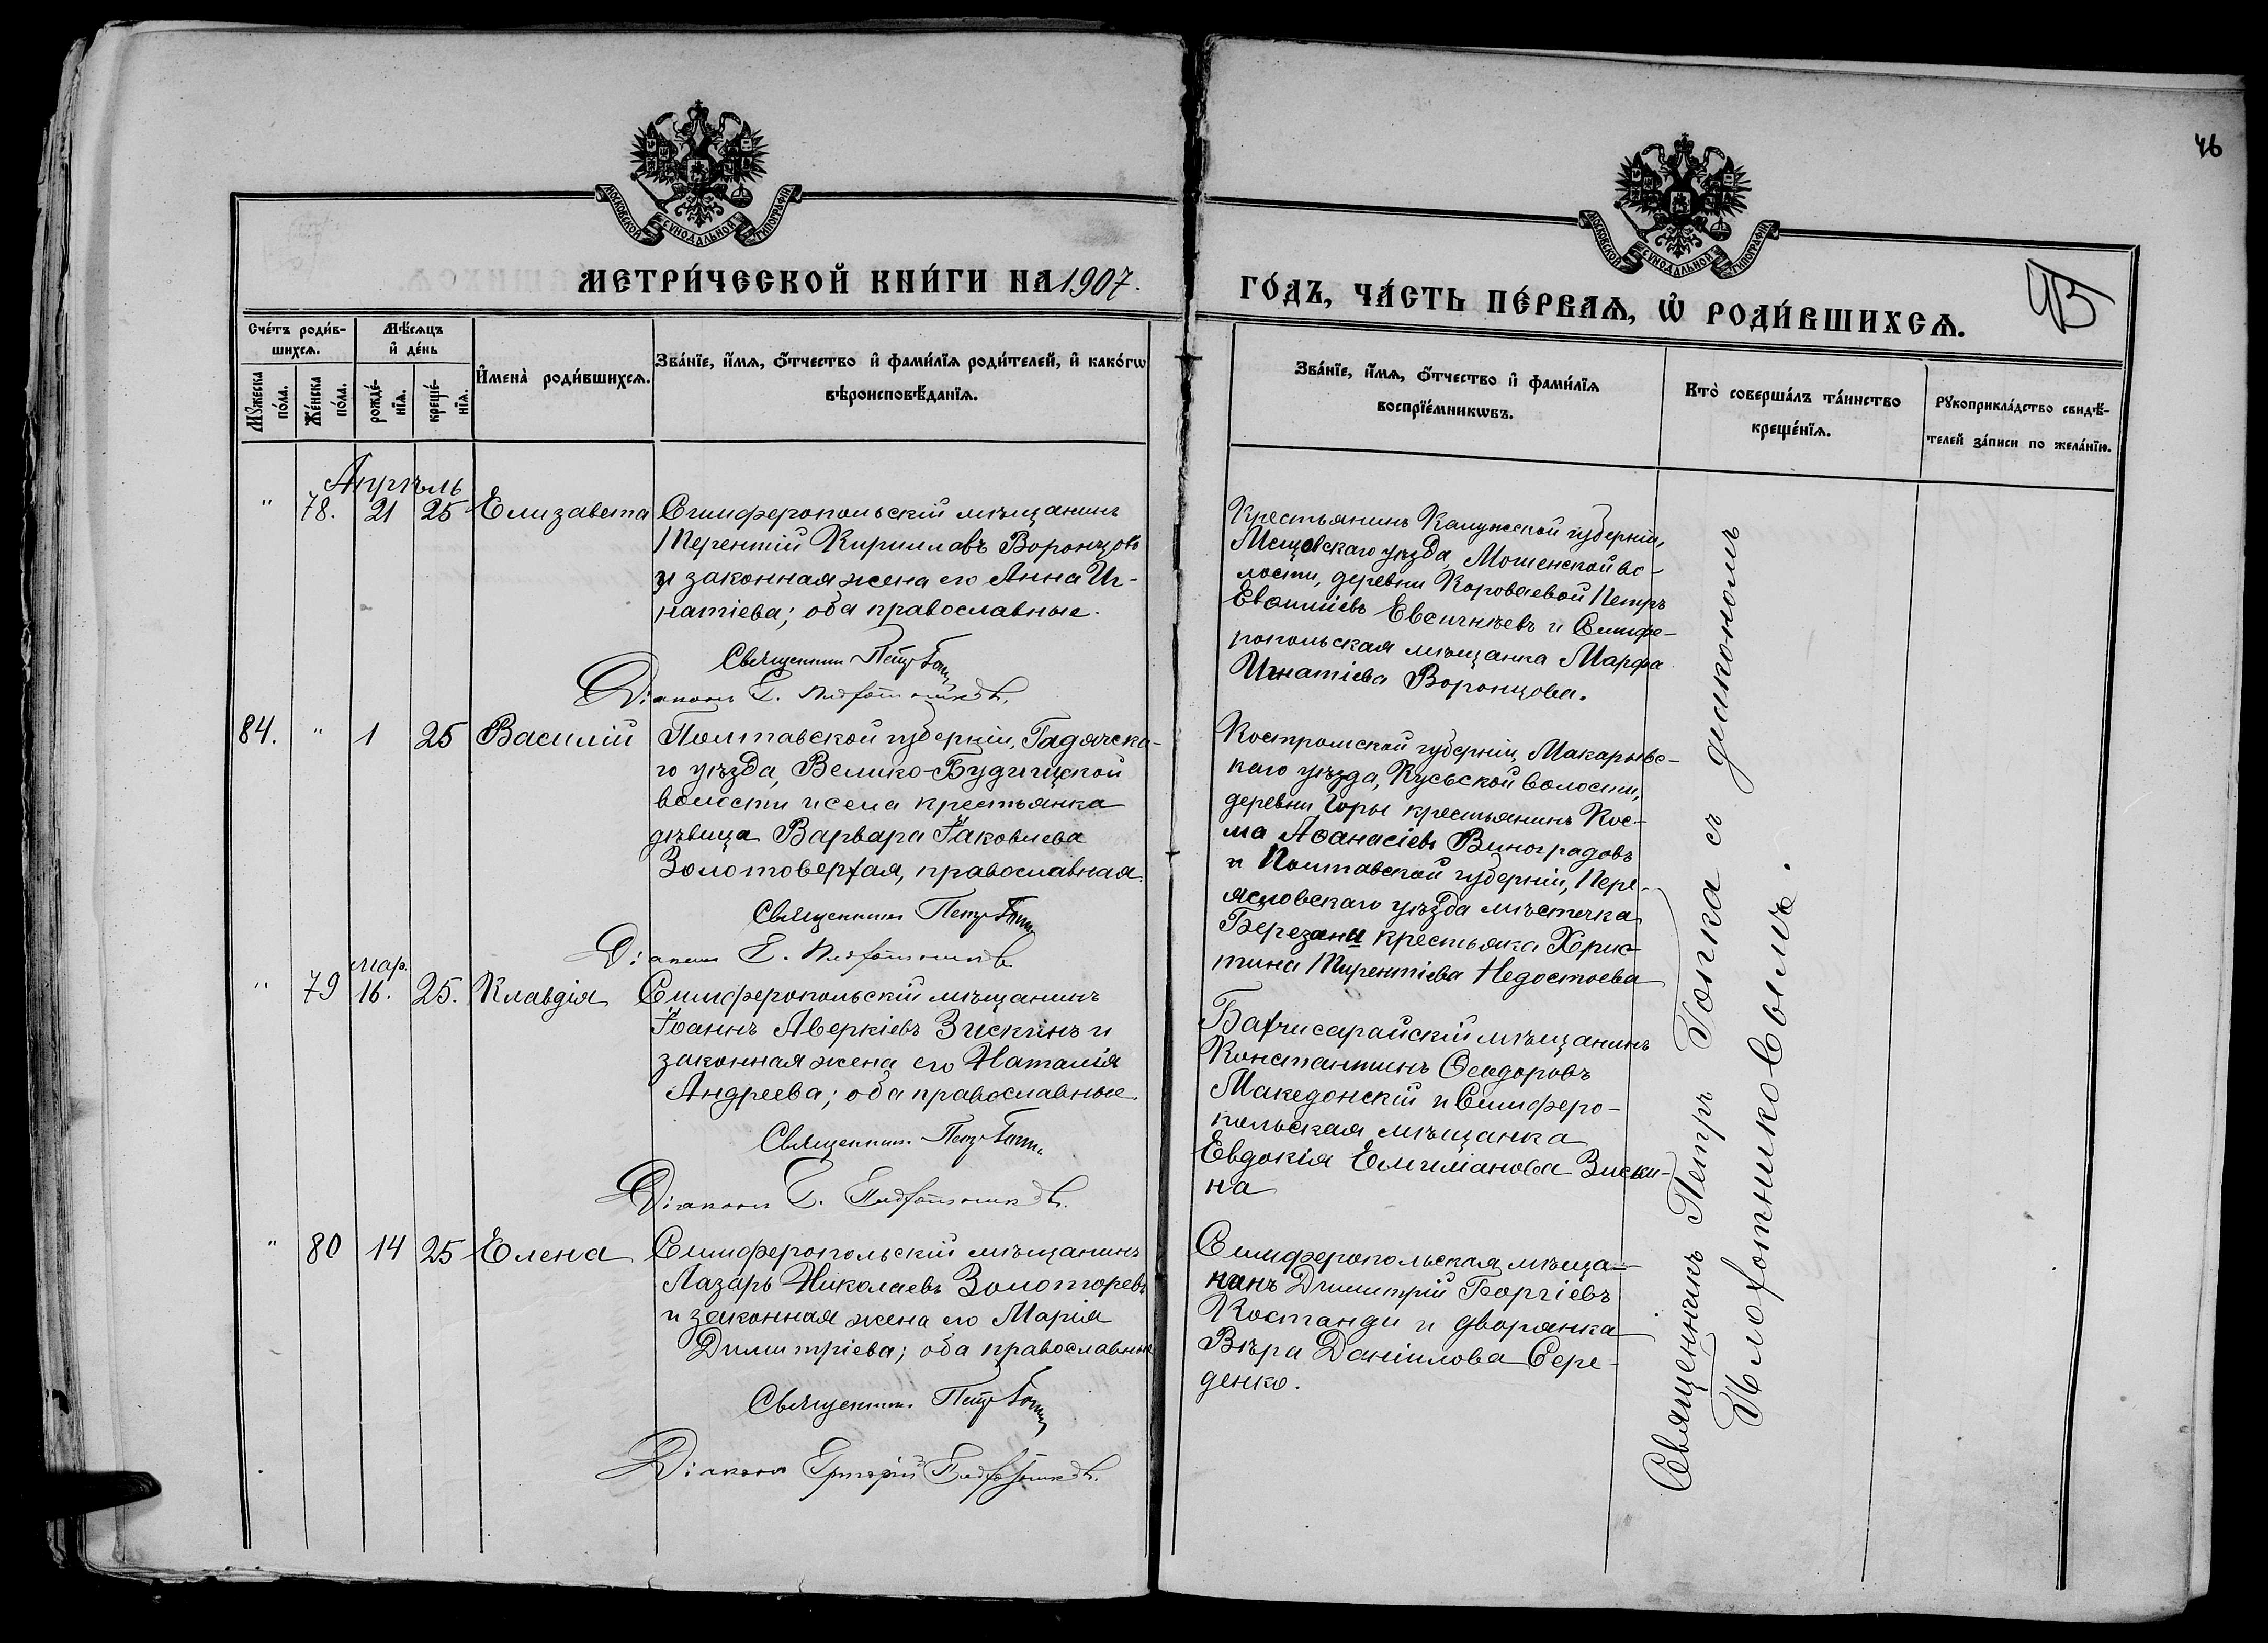 46
МОСКОВСКОЙ СѴНОДАЛЬНОЙ ТИПОГРАФІИ
МОСКОВСКОЙ СѴНОДАЛЬНОЙ ТИПОГРАФІИ
МЕТРИ́ЧЕСКОЙ КНИ́ГИ НА 1907.
ГО́ДЪ, ЧА́СТЬ ПЕ́РВАѦ, Ѡ҆ РОДИ́ВШИХСѦ.
Сче́тъ роди́в-
шихсѧ.
Мѣ́сѧцъ
и҆ де́нь
Мꙋ́жеска
по́ла.
Же́нска
по́ла.
рожде́-
нїѧ.
креще́-
нїѧ.
И҆мена̀ роди́вшихсѧ.
Зва́нїе, и҆́мѧ, ѻ҆́тчество и҆ фами́лїѧ роди́телей, и҆ како́гѡ
вѣроисповѣ́данїѧ.
Зва́нїе, и҆́мѧ, ѻ҆́тчество и҆ фами́лїѧ
воспрїе́мникѡвъ.
Кто̀ соверша́лъ та́инство
креще́нїѧ.
Рꙋкоприкла́дство свидѣ́-
телей за́писи по жела́нїю.
Апрѣль
" 78. 21 25 Елизавета
Симферопольскій мѣщанинъ
Терентій Кирилловъ Воронцовъ
и законная жена его Анна Иг-
натіева; оба православные.
Священникъ Петръ
Діаконъ
Крестьянинъ Калужской губерніи,
Мещовскаго уѣзда, Мошенской во-
лости, деревни Короваевой Петръ
Евсигнѣевъ и Симфе-
ропольская мѣщанка Марфа
Игнатіева Воронцова.
84. " 1 25 Василій
Полтавской губерніи, Гадячска-
го уѣзда, Велико-Будищской
волости и села крестьянка
дѣвица Варвара Іаковлева
Золотоверхая, православная.
Священникъ Петръ
Діаконъ
Костромской губерніи, Макарьевс-
каго уѣзда, Кусьской волости,
деревни Горы крестьянинъ Кос-
ма Аѳанасіевъ Виноградовъ
и Полтавской губерніи, Пере-
яславскаго уѣзда мѣстечка
Березани крестьянка Хрис-
тина Терентіева Недостоева
мар.
" 79 16. 25. Клавдія
Симферопольскій мѣщанинъ
Іоаннъ Аверкіевъ Зискинъ и
законная жена его Наталія
Андреева; оба православные.
Священникъ Петръ
Діаконъ
Бахчисарайскій мѣщанинъ
Константинъ Ѳеодоровъ
Македонскій и Симферо-
польская мѣщанка
Евдокія Емиліанова Зиски-
на
" 80 14 25 Елена
Симферопольскій мѣщанинъ
Лазарь Николаевъ Золоторевъ
и законная жена его Марія
Димитріева; оба православные
Священникъ Петръ
Діаконъ Григорій
Симферопольская мѣща-
нинъ Димитрій Георгіевъ
Костанди и дворянка
Вѣра Даніилова Сере-
денко.
Священникъ Петръ Гопка съ діакономъ
Плохотниковымъ.